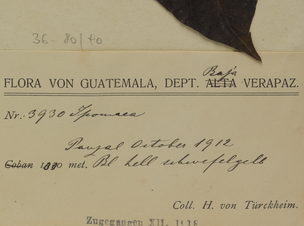 36-80/40
Baja
FLORA VON GUATEMALA, DEPT. ALTA VERAPAZ.
Nr: 3930 Ipomaea
Panzal October 1912
Coban met. Bl hell schwefelgelb
Coll. H. von Türckheim.
Zugegangen XII.